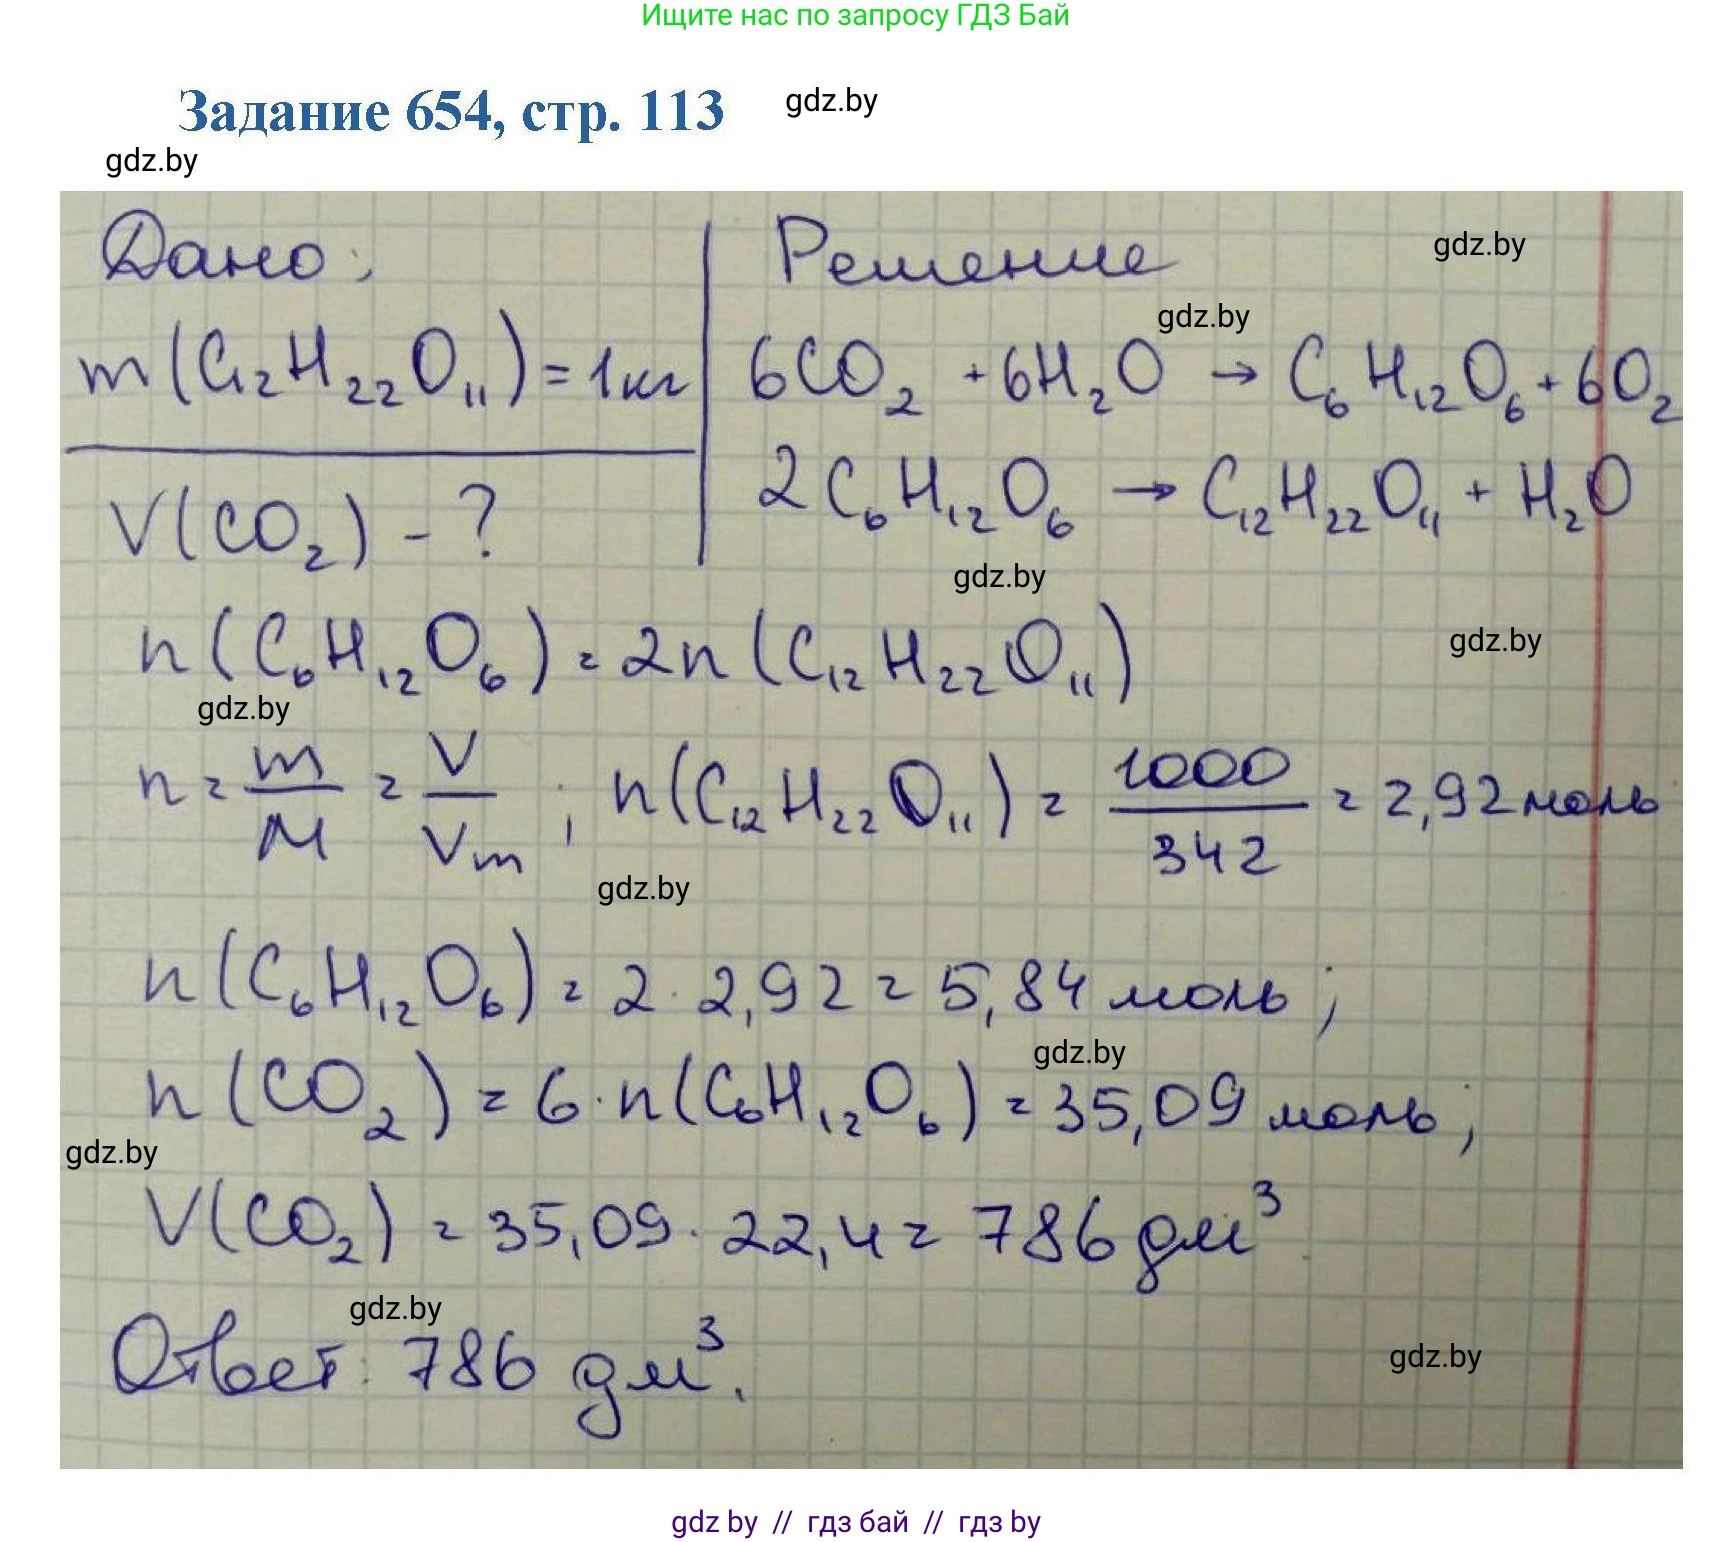 Ищите нас по запросу ГДЗ Бай
Задание 654, стр. 113
gdz.by
gdz.by
Дано:
Решение
gdz.by
gdz.by
m(C₁₂H₂₂O₁₁) = 1 кг
6CO₂ + 6H₂O → C₆H₁₂O₆ + 6O₂
V(CO₂) - ?
2C₆H₁₂O₆ → C₁₂H₂₂O₁₁ + H₂O
gdz.by
n(C₆H₁₂O₆) = 2n(C₁₂H₂₂O₁₁)
gdz.by
gdz.by
n = m/M = V/Vm ; n(C₁₂H₂₂O₁₁) = 1000/342 = 2,92 моль
gdz.by
n(C₆H₁₂O₆) = 2 · 2,92 = 5,84 моль;
gdz.by
n(CO₂) = 6 · n(C₆H₁₂O₆) = 35,09 моль;
gdz.by
V(CO₂) = 35,09 · 22,4 = 786 дм³
gdz.by
Ответ: 786 дм³.
gdz.by
gdz by // гдз бай // гдз by